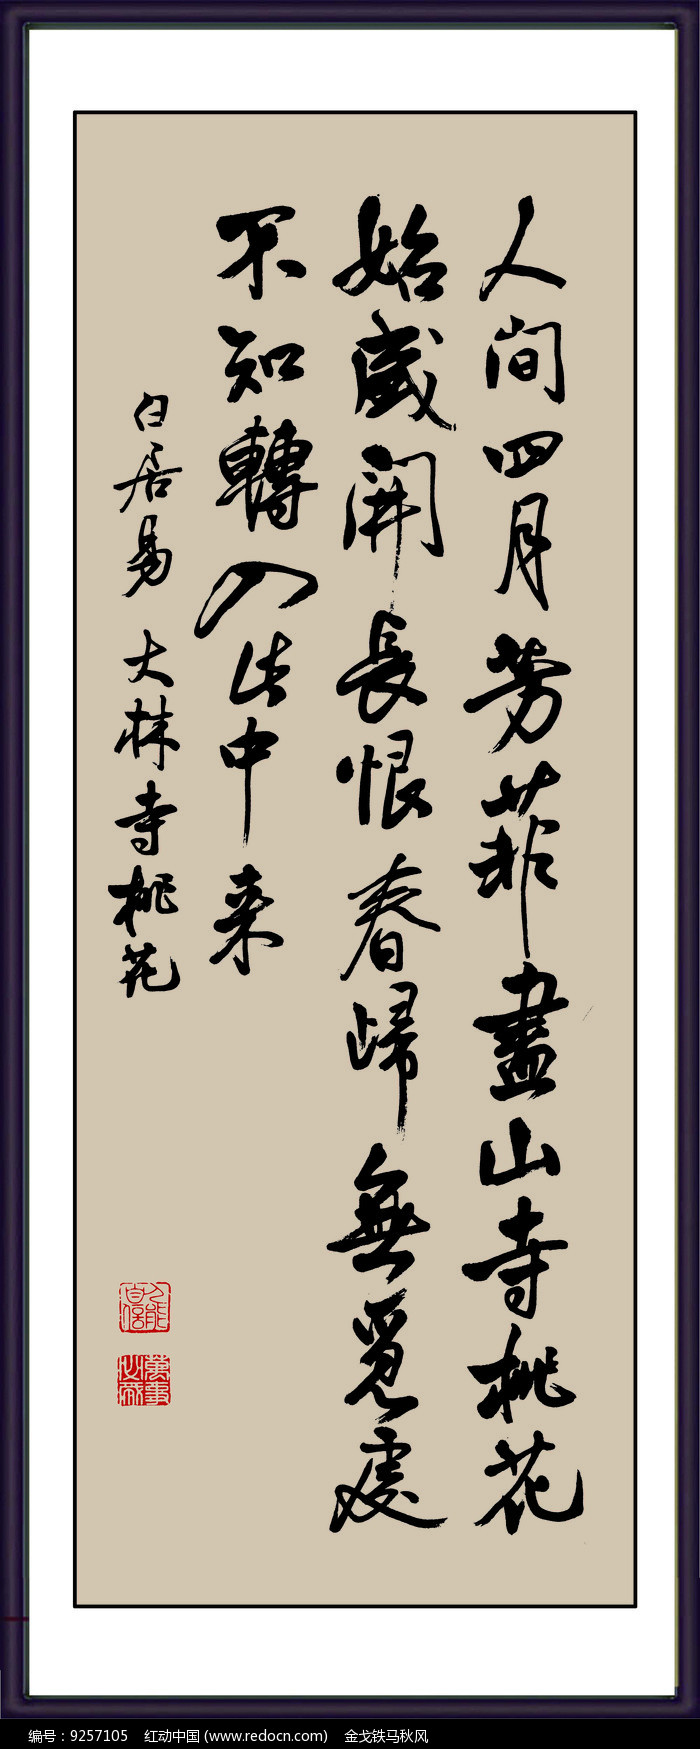 人间四月芳菲盡山寺桃花
始盛開長恨春歸無覓處
不知轉入此中来
白居易 大林寺桃花
编号：9257105 红动中国 (www.redocn.com) 金戈铁马秋风